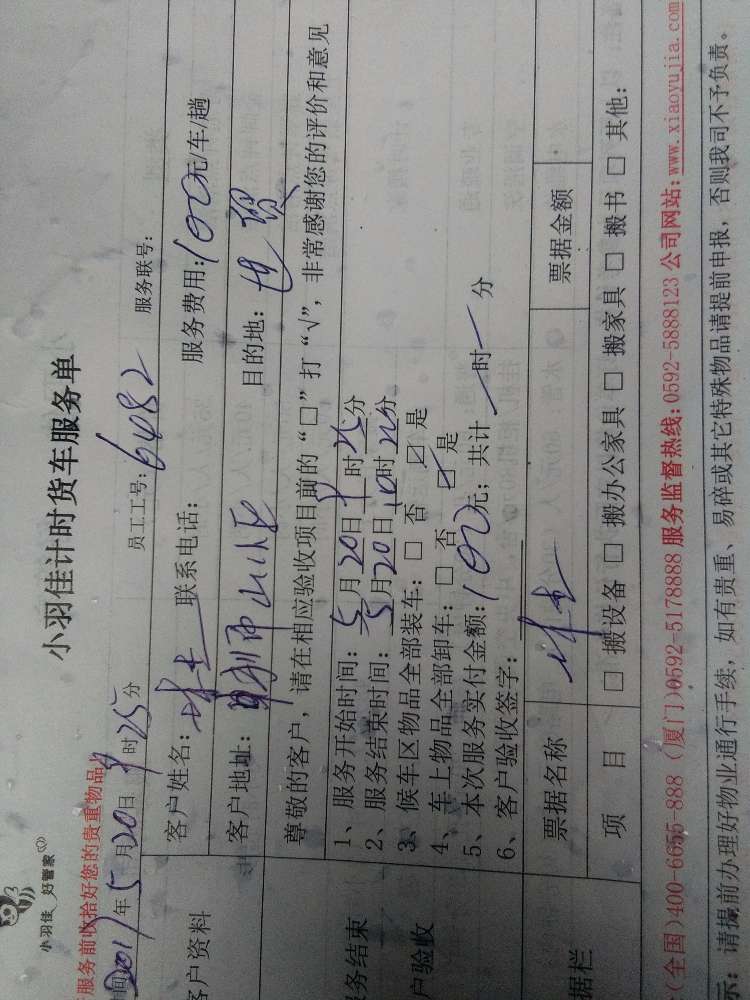 小羽佳 好管家
小羽佳计时货车服务单
服务前收拾好您的贵重物品)
年5月20日9时25分 员工工号:6482 服务联号:
客户资料
客户姓名: 联系电话: 服务费用:100元/车/趟
客户地址: 目的地:世贸
尊敬的客户,请在相应验收项目前的“□”打“√”,非常感谢您的评价和意见
务结束
户验收
1、服务开始时间:5月20日9时25分
2、服务结束时间:5月20日10时20分
3、候车区物品全部装车:□ 否 ☑ 是
4、车上物品全部卸车:□ 否 ☑ 是
5、本次服务实付金额:100元;共计 时 分
6、客户验收签字:
据栏
票据名称 票据金额
项 目 □ 搬设备 □ 搬办公家具 □ 搬家具 □ 搬书 □ 其他:
(全国)400-6655-888 (厦门)0592-5178888 服务监督热线:0592-5888123 公司网站:www.xiaoyujia.com
示:请提前办理好物业通行手续,如有贵重、易碎或其它特殊物品请提前申报,否则我司不予负责。